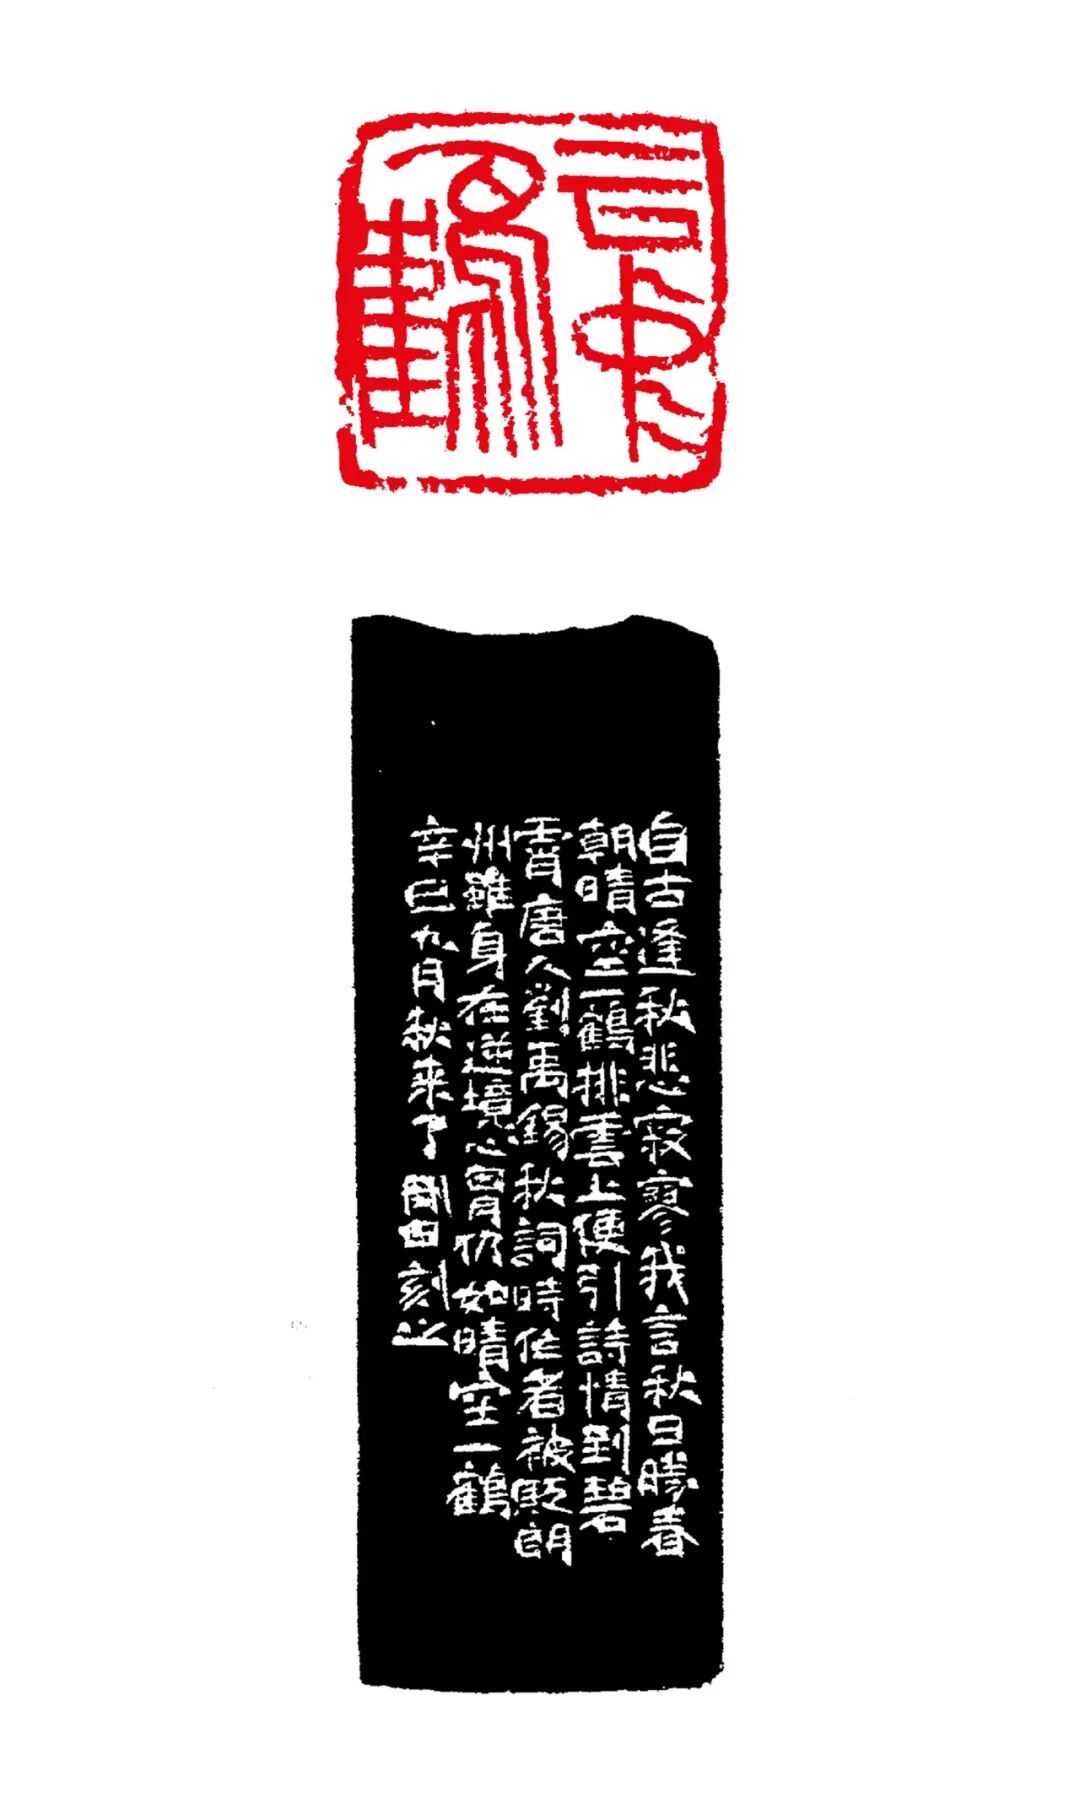 云中
一鶴
自古逢秋悲寂寥我言秋日勝春
朝晴空一鶴排雲上便引詩情到碧
霄唐人劉禹錫秋詞時作者被貶朗
州雖身在逆境心胷仍如晴空一鶴
辛巳九月秋来了剛田刻之